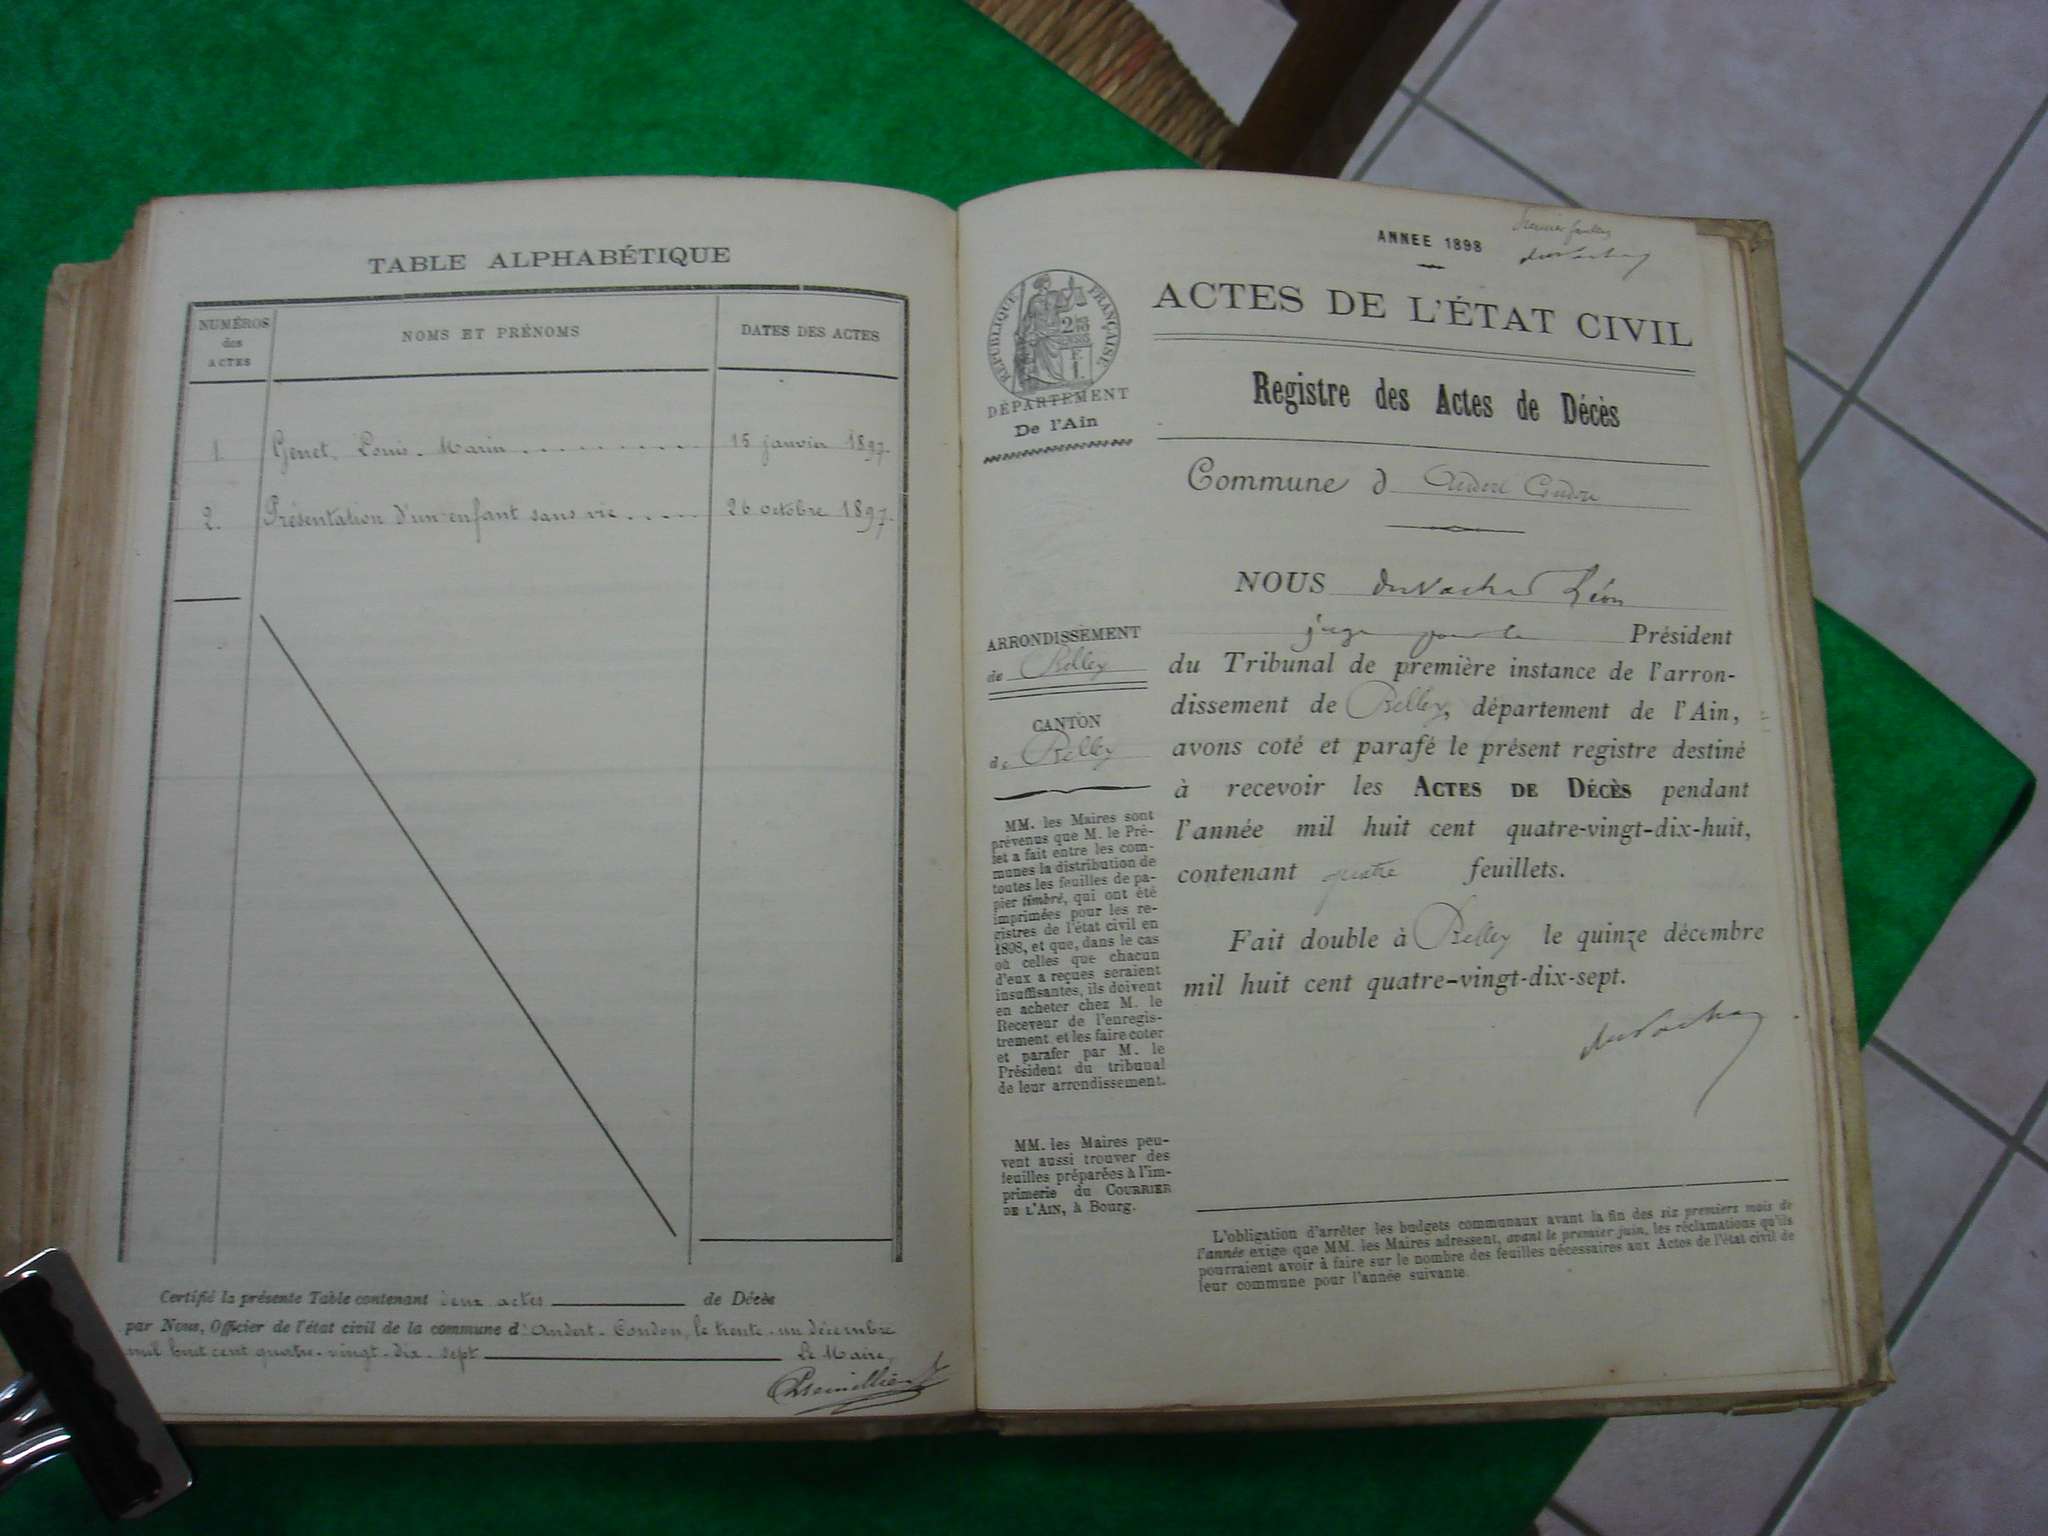 TABLE ALPHABÉTIQUE
NUMÉROS
des
ACTES
NOMS ET PRÉNOMS
DATES DES ACTES
1. Genet, Louis-Marin 15 janvier 1897.
2. Présentation d'un enfant sans vie 26 octobre 1897.
Certifié la présente Table contenant deux actes de Décès
par Nous, Officier de l'état civil de la commune d'Andert-Condon, le trente-un décembre
mil huit cent quatre-vingt-dix-sept Le Maire,
ANNEE 1898
ACTES DE L'ÉTAT CIVIL
Registre des Actes de Décès
RÉPUBLIQUE FRANÇAISE
DÉPARTEMENT
De l'Ain
Commune d Andert Condon
NOUS Léon
juge pour le Président
du Tribunal de première instance de l'arron-
dissement de Belley, département de l'Ain,
avons coté et parafé le présent registre destiné
à recevoir les ACTES DE DÉCÈS pendant
l'année mil huit cent quatre-vingt-dix-huit,
contenant quatre feuillets.
Fait double à Belley le quinze décembre
mil huit cent quatre-vingt-dix-sept.
ARRONDISSEMENT
de Belley
CANTON
de Belley
MM. les Maires sont
prévenus que M. le Pré-
fet a fait entre les com-
munes la distribution de
toutes les feuilles de pa-
pier timbré, qui ont été
imprimées pour les re-
gistres de l'état civil en
1898, et que, dans le cas
où celles que chacun
d'eux a reçues seraient
insuffisantes, ils doivent
en acheter chez M. le
Receveur de l'enregis-
trement et les faire coter
et parafer par M. le
Président du tribunal
de leur arrondissement.
MM. les Maires peu-
vent aussi trouver des
feuilles préparées à l'im-
primerie du COURRIER
DE L'AIN, à Bourg.
L'obligation d'arrêter les budgets communaux avant la fin des six premiers mois de
l'année exige que MM. les Maires adressent, avant le premier juin, les réclamations qu'ils
pourraient avoir à faire sur le nombre des feuilles nécessaires aux Actes de l'état civil de
leur commune pour l'année suivante.